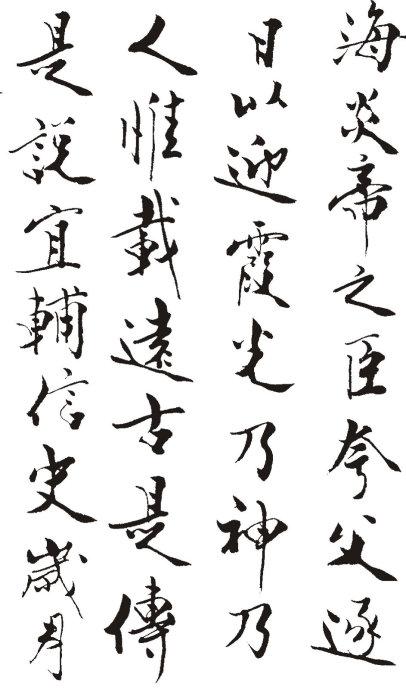 海炎帝之臣夸父逐
日以迎霞光乃神乃
人惟載遠古是傳
是説宜輔信史歲月